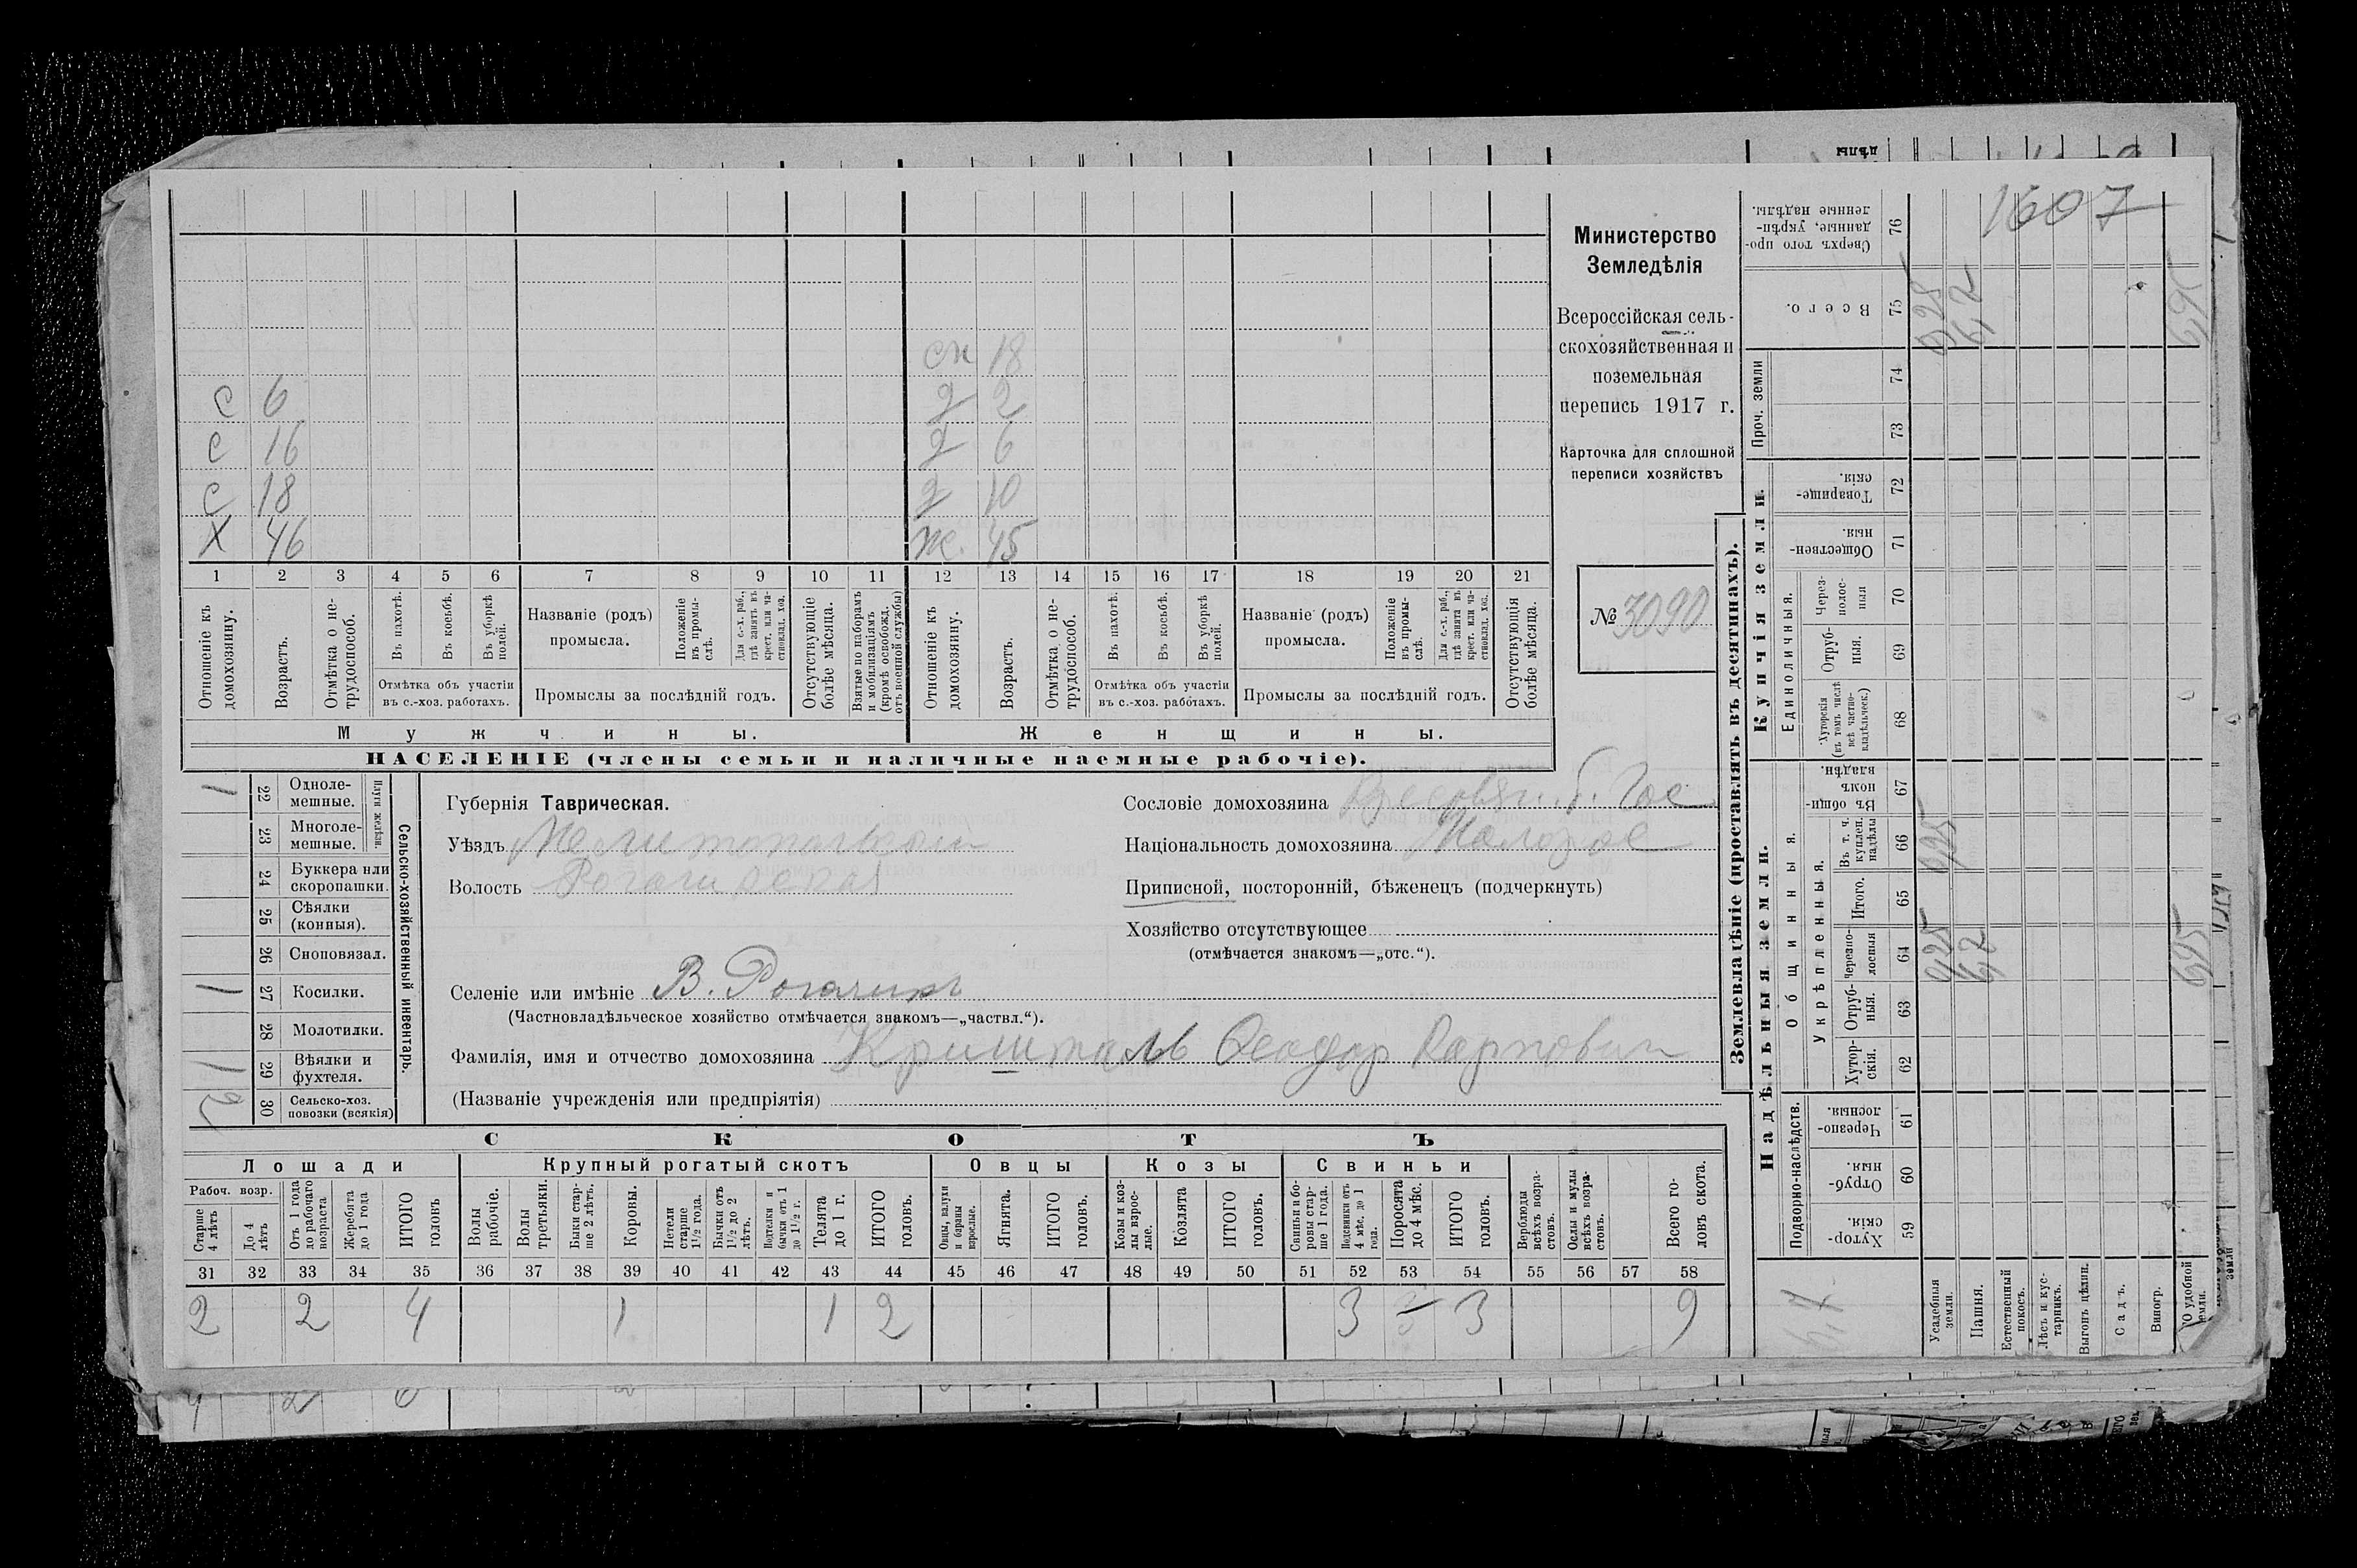 1607
Министерство
Земледѣлія
Всероссійская сель-
скохозяйственная и
поземельная
перепись 1917 г.
Карточка для сплошной
переписи хозяйствъ
№ 3090
сн 18
с 6 д 2
с 16 д 6
с 18 д 10
х 46 ж. 45
1 2 3 4 5 6 7 8 9 10 11 12 13 14 15 16 17 18 19 20 21
Отношеніе къ домохозяину.
Возрастъ.
Отмѣтка о не-трудоспособ.
Въ пахотѣ.
Въ косьбѣ.
Въ уборкѣ полей.
Отмѣтка объ участіи
въ с.-хоз. работахъ.
Названіе (родъ)
промысла.
Положеніе въ промы-слѣ.
Для с.-х. раб., гдѣ занятъ въ крест. или ча-стновлад. хоз.
Промыслы за послѣдній годъ.
Отсутствующіе болѣе мѣсяца.
Взятые по наборамъ и мобилизаціямъ (кромѣ освобожд. отъ военной службы)
Отношеніе къ домохозяину.
Возрастъ.
Отмѣтка о не-трудоспособ.
Въ пахотѣ.
Въ косьбѣ.
Въ уборкѣ полей.
Отмѣтка объ участіи
въ с.-хоз. работахъ.
Названіе (родъ)
промысла.
Положеніе въ промы-слѣ.
Для с.-х. раб., гдѣ занята въ крест. или ча-стновлад. хоз.
Промыслы за послѣдній годъ.
Отсутствующія болѣе мѣсяца.
Мужчины. Женщины.
НАСЕЛЕНІЕ (члены семьи и наличные наемные рабочіе).
Сельско-хозяйственный инвентарь.
Плуги желѣзн.
1 22 Одноле-мешные.
23 Многоле-мешные.
24 Буккера или скоропашки.
25 Сѣялки (конныя).
26 Сноповязал.
1 27 Косилки.
28 Молотилки.
1 29 Вѣялки и фухтеля.
2 30 Сельско-хоз. повозки (всякія)
Губернія Таврическая.
Уѣздъ Мелитопольскій
Волость Рогачикская
Селеніе или имѣніе В. Рогачикъ
(Частновладѣльческое хозяйство отмѣчается знакомъ—„частвл.“).
Фамилія, имя и отчество домохозяина Кришталь Феодор Карпович
(Названіе учрежденія или предпріятія)
Сословіе домохозяина
Національность домохозяина Малорос
Приписной, посторонній, бѣженецъ (подчеркнуть)
Хозяйство отсутствующее
(отмѣчается знакомъ—„отс.“).
СКОТЪ
Лошади Крупный рогатый скотъ Овцы Козы Свиньи
Рабоч. возр.
Старше 4 лѣтъ
До 4 лѣтъ
Отъ 1 года до рабочаго возраста
Жеребята до 1 года
ИТОГО головъ
Волы рабочіе.
Волы третьяки.
Быки стар-ше 2 лѣтъ.
Коровы.
Нетели старше 1½ года.
Бычки отъ 1½ до 2 лѣтъ.
Подтелки и бычки отъ 1 до 1½ г.
Телята до 1 г.
ИТОГО головъ.
Овцы, валухи и бараны взрослые.
Ягнята.
ИТОГО головъ.
Козы и коз-лы взрос-лые.
Козлята
ИТОГО головъ.
Свиньи и бо-ровы стар-ше 1 года.
Подсвинки отъ 4 мѣс. до 1 года.
Поросята до 4 мѣс.
ИТОГО головъ.
Верблюды всѣхъ возра-стовъ.
Ослы и мулы всѣхъ возра-стовъ.
Всего го-ловъ скота.
31 32 33 34 35 36 37 38 39 40 41 42 43 44 45 46 47 48 49 50 51 52 53 54 55 56 57 58
2 2 4 1 1 2 3 3 9
Землевладѣніе (проставлять въ десятинахъ).
Надѣльныя земли. Купчія земли.
Проч. земли
Подворно-наслѣдств.
Общинныя.
Укрѣпленныя.
Единоличныя.
Хутор-скія. 59
Отруб-ныя. 60
Черезпо-лосныя. 61
Хутор-скія. 62
Отруб-ныя. 63
Черезпо-лосныя 64
Итого. 65
Въ т. ч. куплен. надѣлы 66
Въ общи-номъ владѣн. 67
Хуторскія (въ томъ числѣ всѣ частно-владѣльческ.) 68
Отруб-ныя. 69
Через-полос-ныя 70
Обществен-ныя. 71
Товарище-скія. 72
73
74
Всего. 75
Сверхъ того про-данные, укрѣп-ленные надѣлы. 76
Усадебныя земли.
Пашня.
Естественный покосъ.
Лѣсъ и кус-тарникъ.
Выгонъ цѣлин.
Садъ.
Виногр.